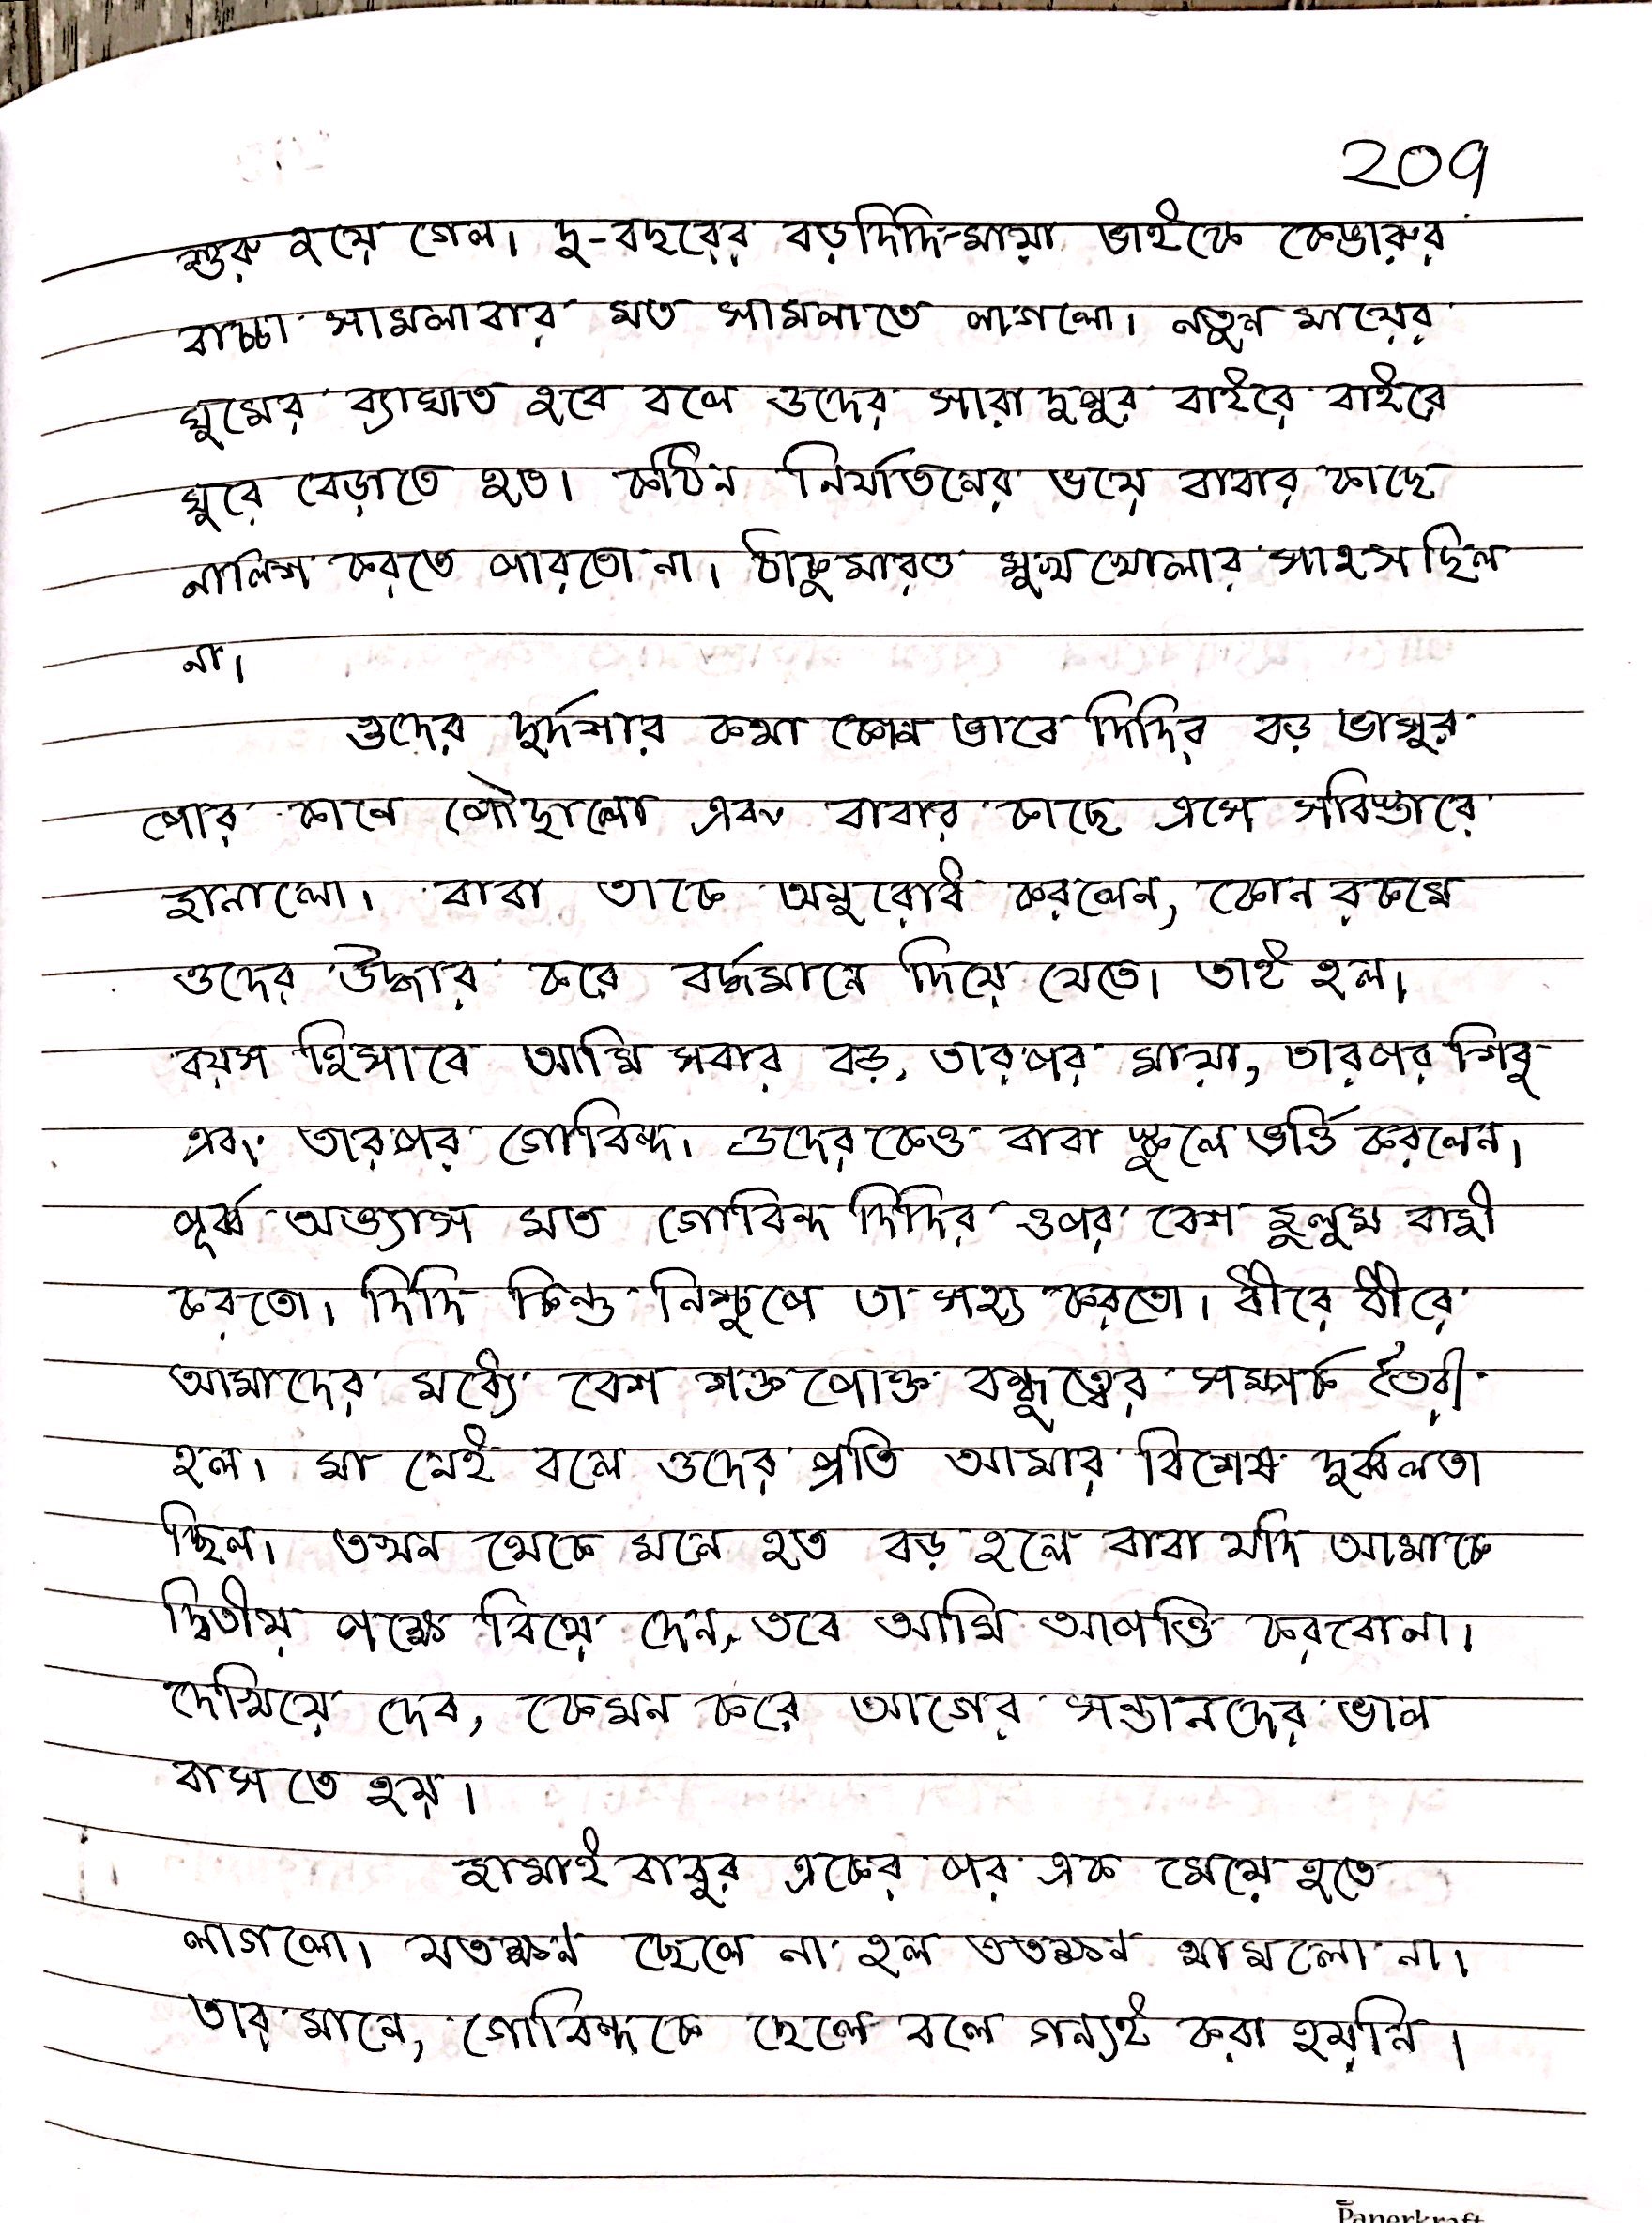 209
শুরু হয়ে গেল। দু-বছরের বড়দিদি-মায়া ভাইকে কেঙারুর
বাচ্চা সামলাবার মত সামলাতে লাগলো। নতুন মায়ের
ঘুমের ব্যাঘাত হবে বলে ওদের সারা দুপুর বাইরে বাইরে
ঘুরে বেড়াতে হত। কঠিন নির্যাতনের ভয়ে বাবার কাছে
নালিশ করতে পারতো না। ঠাকুমারও মুখ খোলার সাহস ছিল
না।
ওদের দুর্দশার কথা কোন ভাবে দিদির বড় ভাসুর
পোর কানে পৌছালো এবং বাবার কাছে এসে সবিস্তারে
জানালো। বাবা তাকে অনুরোধ করলেন, কোন রকমে
ওদের উদ্ধার করে বর্দ্ধমানে দিয়ে যেতে। তাই হল।
বয়স হিসাবে আমি সবার বড়, তারপর মায়া, তারপর শিবু
এবং তারপর গোবিন্দ। ওদেরকেও বাবা স্কুলে ভর্ত্তি করলেন।
পূর্ব্ব অভ্যাস মত গোবিন্দ দিদির ওপর বেশ জুলুম বাজী
করতো। দিদি কিন্তু নিশ্চুপে তা সহ্য করতো। ধীরে ধীরে
আমাদের মধ্যে বেশ শক্তপোক্ত বন্ধুত্বের সম্পর্ক তৈরী
হল। মা নেই বলে ওদের প্রতি আমার বিশেষ দুর্ব্বলতা
ছিল। তখন থেকে মনে হত বড় হলে বাবা যদি আমাকে
দ্বিতীয় পক্ষে বিয়ে দেন, তবে আমি আপত্তি করবোনা।
দেখিয়ে দেব, কেমন করে আগের সন্তানদের ভাল
বাসতে হয়।
জামাই বাবুর একের পর এক মেয়ে হতে
লাগলো। যতক্ষন ছেলে না হল ততক্ষন থামলো না।
তার মানে, গোবিন্দকে ছেলে বলে গন্যই করা হয়নি।
Paperkraft